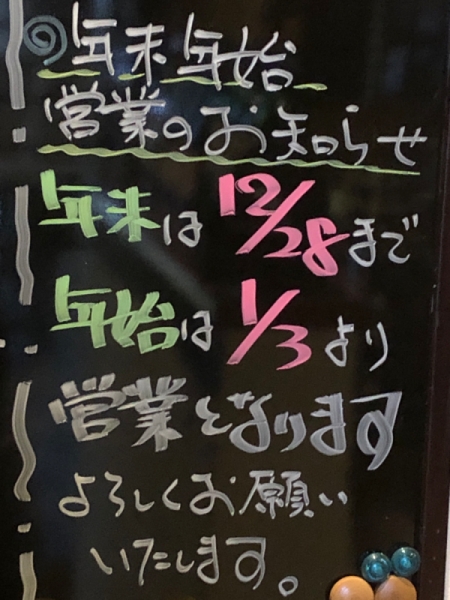 年末年始
営業のお知らせ
年末は12/28まで
年始は1/3より
営業となります
よろしくお願い
いたします。